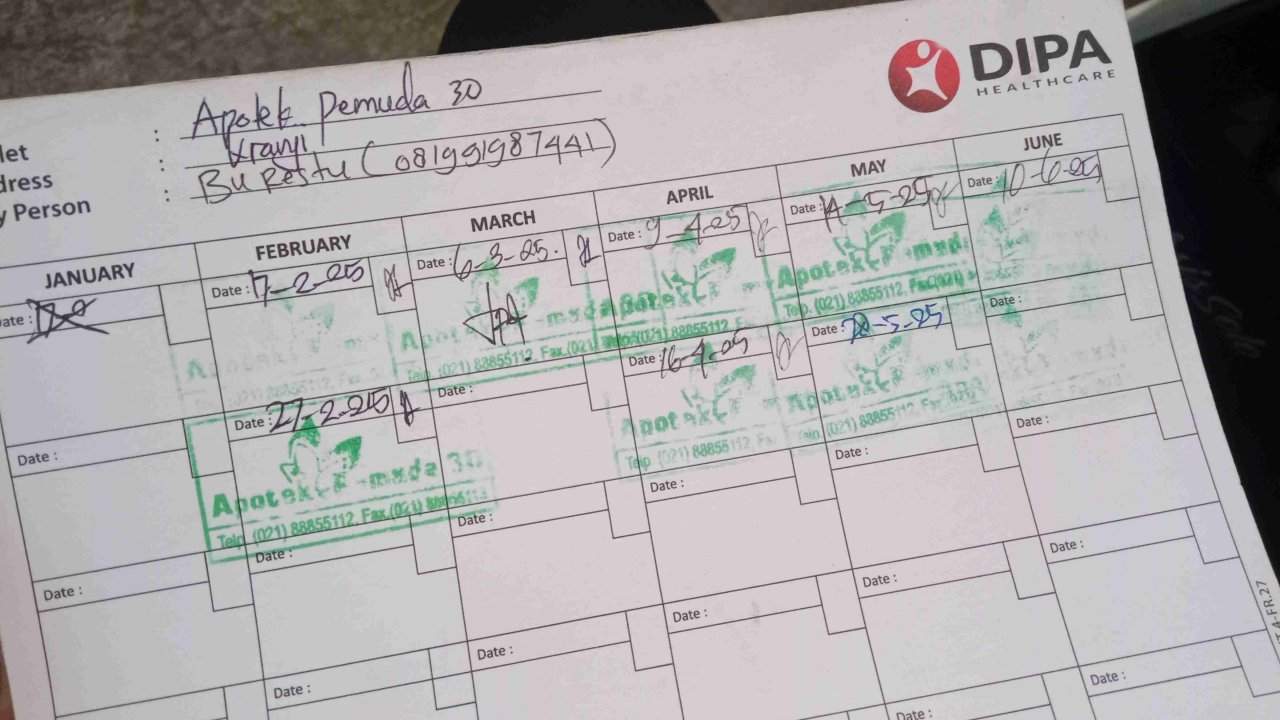 DIPA
HEALTHCARE
let : Apotek Pemuda 30
dress : Kranji
y Person : Bu Restu (081991987441)
JANUARY
FEBRUARY
MARCH
APRIL
MAY
JUNE
ate :
Date : 7-2-25
Date : 6-3-25.
Date : 9-4-25
Date : 14-5-25
Date : 10-6-25
Apotek
Telp. (021) 88855112, Fax.(021)
Apotek
Telp. (021) 88855112, Fax.(021)
Date :
Date : 27-2-25
Date :
Date : 16-4-25
Date : -5-25
Date :
Apotek
Telp. (021) 88855112, Fax.(021)
Apotek
Telp. (021) 88855112, Fa
Date :
Date :
Date :
Date :
Date :
Date :
Date :
Date :
Date :
Date :
Date :
Date :
Date :
Date :
4-FR.27